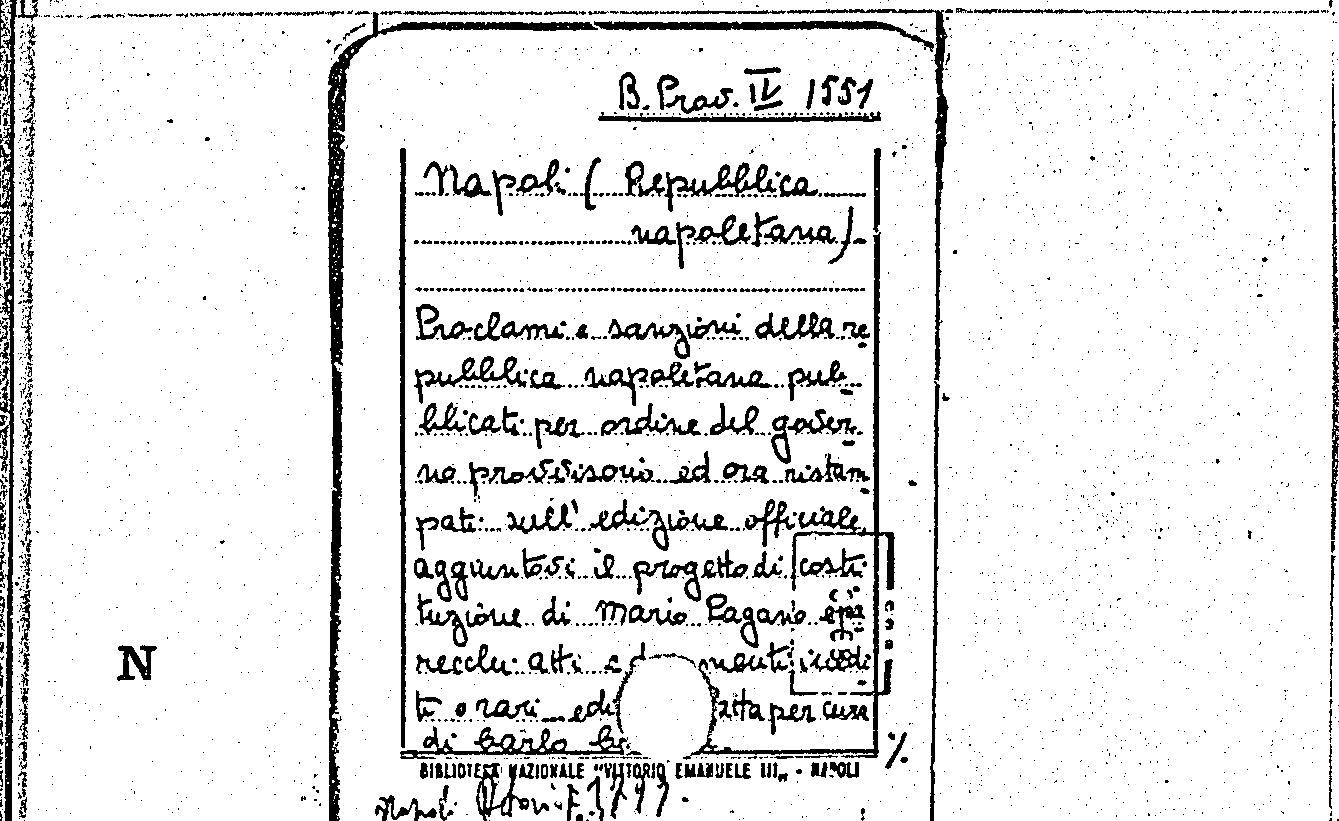 B. Prov. IV 1551
Napoli (Repubblica
napoletana).
Proclami e sanzioni della re
pubblica napoletana pub
blicati per ordine del gover
no provvisorio ed ora ristam
pati sull' edizione officiale,
aggiuntovi il progetto di costi
tuzione di Mario Pagano
recchi atti e menti inedi
ti o rari per cura
di Carlo
N
BIBLIOTECA NAZIONALE "VITTORIO EMANUELE III„ - NAPOLI
Napoli